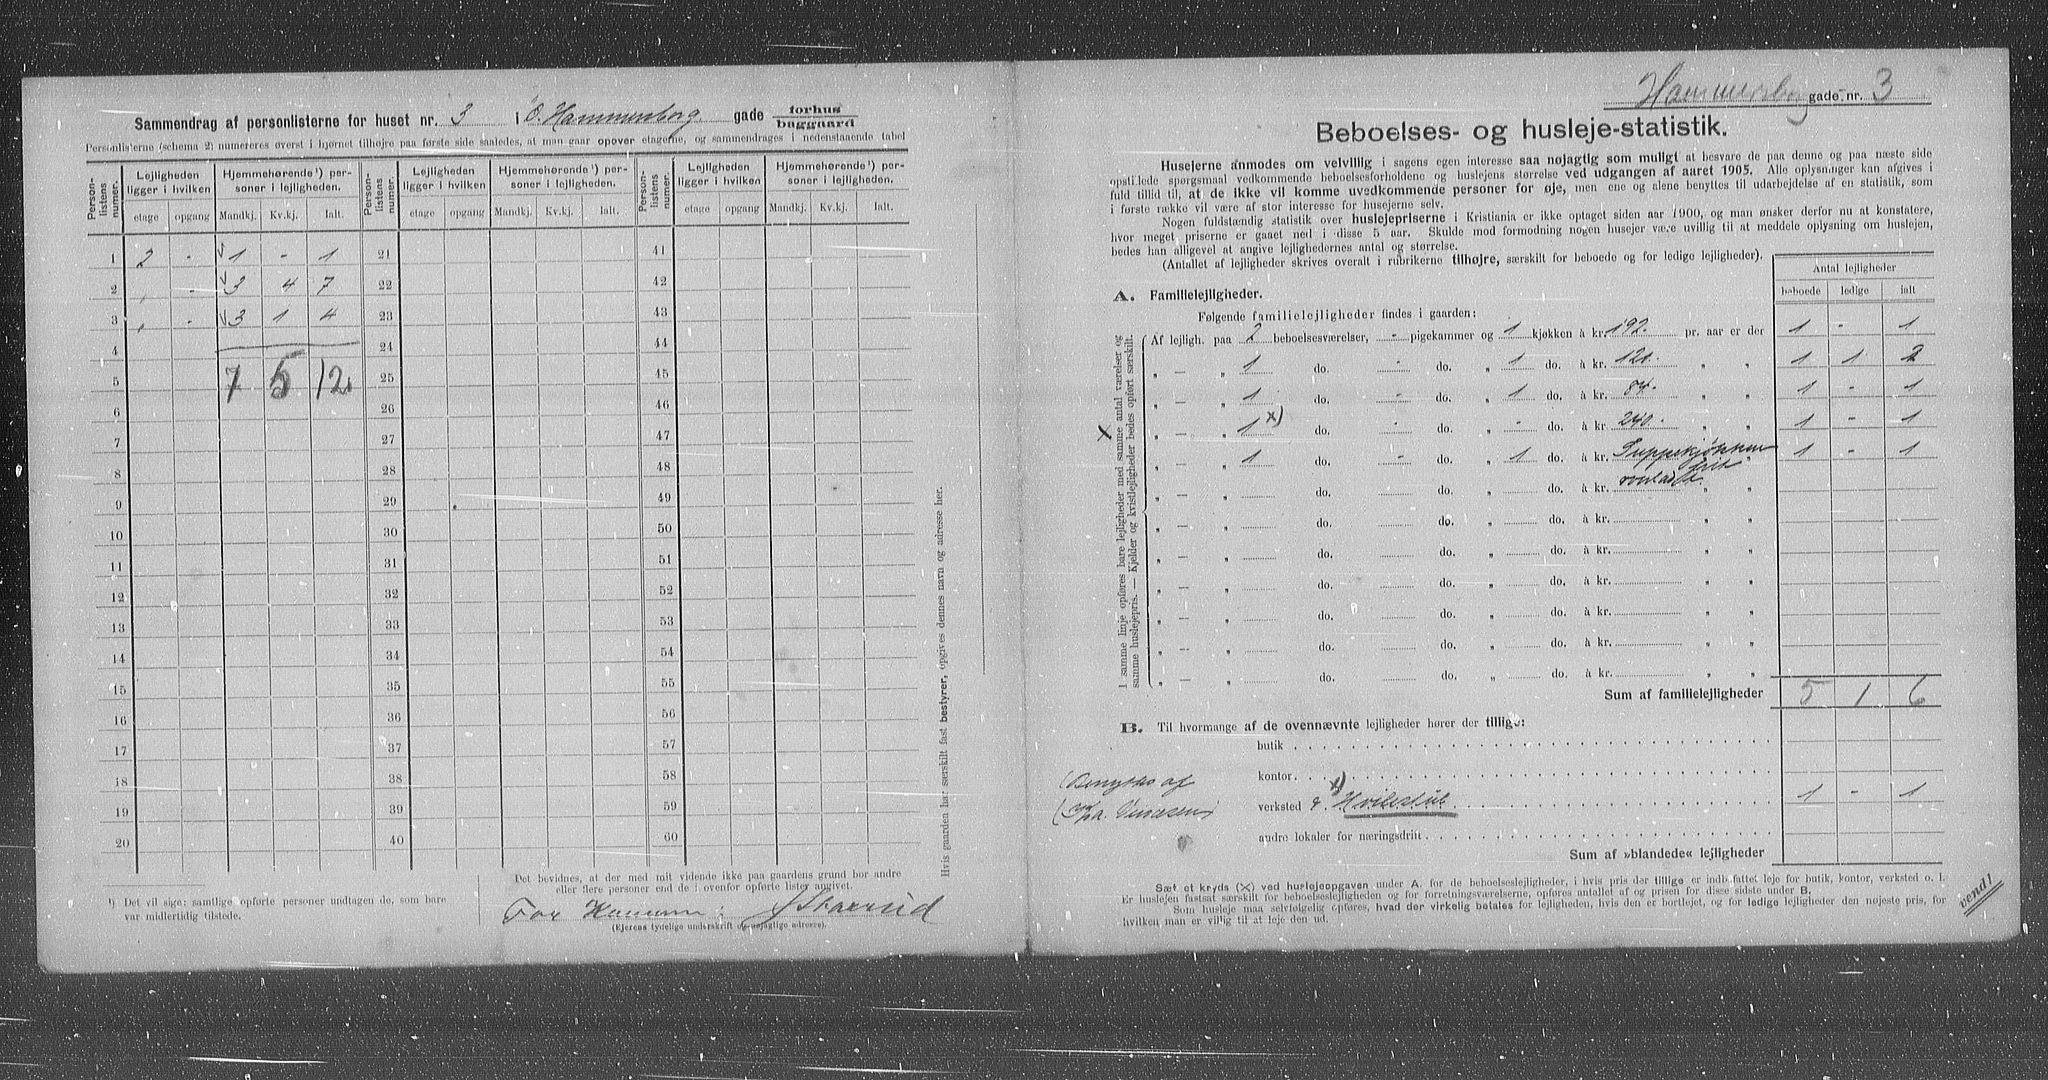 Sammendrag af personlisterne for huset nr. 3 i Ø. Hammersborg gade forhus baggaard
Personlisterne (schema 2) numereres øverst i hjørnet tilhøjre paa første side saaledes, at man gaar opover etagerne, og sammendrages i nedenstaaende tabel
Person-listens numer. Lejligheden ligger i hvilken Hjemmehørende¹) personer i lejligheden. Person-listens numer. Lejligheden ligger i hvilken Hjemmehørende¹) personer i lejligheden. Person-listens numer. Lejligheden ligger i hvilken Hjemmehørende¹) personer i lejligheden.
etage opgang Mandkj. Kv.kj. Ialt. etage opgang Mandkj. Kv.kj. Ialt. etage opgang Mandkj. Kv.kj. Ialt.
1 2 - √1 - 1 21 41
2 " - √3 4 7 22 42
3 " - √3 1 4 23 43
4 24 44
5 7 5 12 25 45
6 26 46
7 27 47
8 28 48
9 29 49
10 30 50
11 31 51
12 32 52
13 33 53
14 34 54
15 35 55
16 36 56
17 37 57
18 38 58
19 39 59
20 40 60
Hvis gaarden har særskilt fast bestyrer, opgives dennes navn og adresse her.
¹) Det vil sige: samtlige opførte personer undtagen de, som bare
var midlertidig tilstede.
Det bevidnes, at der med mit vidende ikke paa gaardens grund bor andre
eller flere personer end de i ovenfor opførte lister angivet.
For
(Ejerens tydelige underskrift og nøjagtige adresse).
Hammersborg gade nr. 3
Beboelses- og husleje-statistik.
Husejerne anmodes om velvillig i sagens egen interesse saa nøjagtig som muligt at besvare de paa denne og paa næste side
opstillede spørgsmaal vedkommende beboelsesforholdene og huslejens størrelse ved udgangen af aaret 1905. Alle oplysninger kan afgives i
fuld tillid til, at de ikke vil komme uvedkommende personer for øje, men ene og alene benyttes til udarbejdelse af en statistik, som
i første række vil være af stor interesse for husejerne selv.
Nogen fuldstændig statistik over huslejepriserne i Kristiania er ikke optaget siden aar 1900, og man ønsker derfor nu at konstatere,
hvor meget priserne er gaaet ned i disse 5 aar. Skulde mod formodning nogen husejer være uvillig til at meddele oplysning om huslejen,
bedes han alligevel at angive lejlighedernes antal og størrelse.
(Antallet af lejligheder skrives overalt i rubrikerne tilhøjre, særskilt for beboede og for ledige lejligheder).
Antal lejligheder
beboede ledige ialt
A. Familielejligheder.
Følgende familielejligheder findes i gaarden:
I samme linje opføres bare lejligheder med samme antal værelser og
samme huslejepris. — Kjelder og kvistlejligheder bedes opført særskilt.
Af lejligh. paa 2 beboelsesværelser, - pigekammer og 1 kjøkken à kr. 192. pr. aar er der 1 - 1
" — " 1 do. - do. " 1 do. à kr. 121. " " 1 1 2
" — " 1 do. - do. " 1 do. à kr. 84. " " 1 - 1
X " — " 1 x) do. - do. " - do. à kr. 240. " " 1 - 1
" — " 1 do. - do. " 1 do. à kr. Suppekjøkken " 1 - 1
" — " do. do. " do. à kr. frit " "
" — " do. do. " do. à kr. " "
" — " do. do. " do. à kr. " "
" — " do. do. " do. à kr. " "
" — " do. do. " do. à kr. " "
" — " do. do. " do. à kr. " "
" — " do. do. " do. à kr. " "
Sum af familielejligheder 5 1 6
B. Til hvormange af de ovennævnte lejligheder hører der tillige:
butik
kontor
(Benyttes af
verksted x) Hvilestue 1 - 1
andre lokaler for næringsdrift
Sum af »blandede« lejligheder
Sæt et kryds (×) ved huslejeopgaven under A. for de beboelseslejligheder, i hvis pris der tillige er indbefattet leje for butik, kontor, verksted o. l.
Er huslejen fastsat særskilt for beboelseslejligheden og for forretningsværelserne, opføres antallet af og prisen for disse sidste under B.
Som husleje maa selvfølgelig opføres, hvad der virkelig betales for lejligheden, hvis den er bortlejet, og for ledige lejligheder den nøjeste pris, for
hvilken man er villig til at leje den ud.
vend!